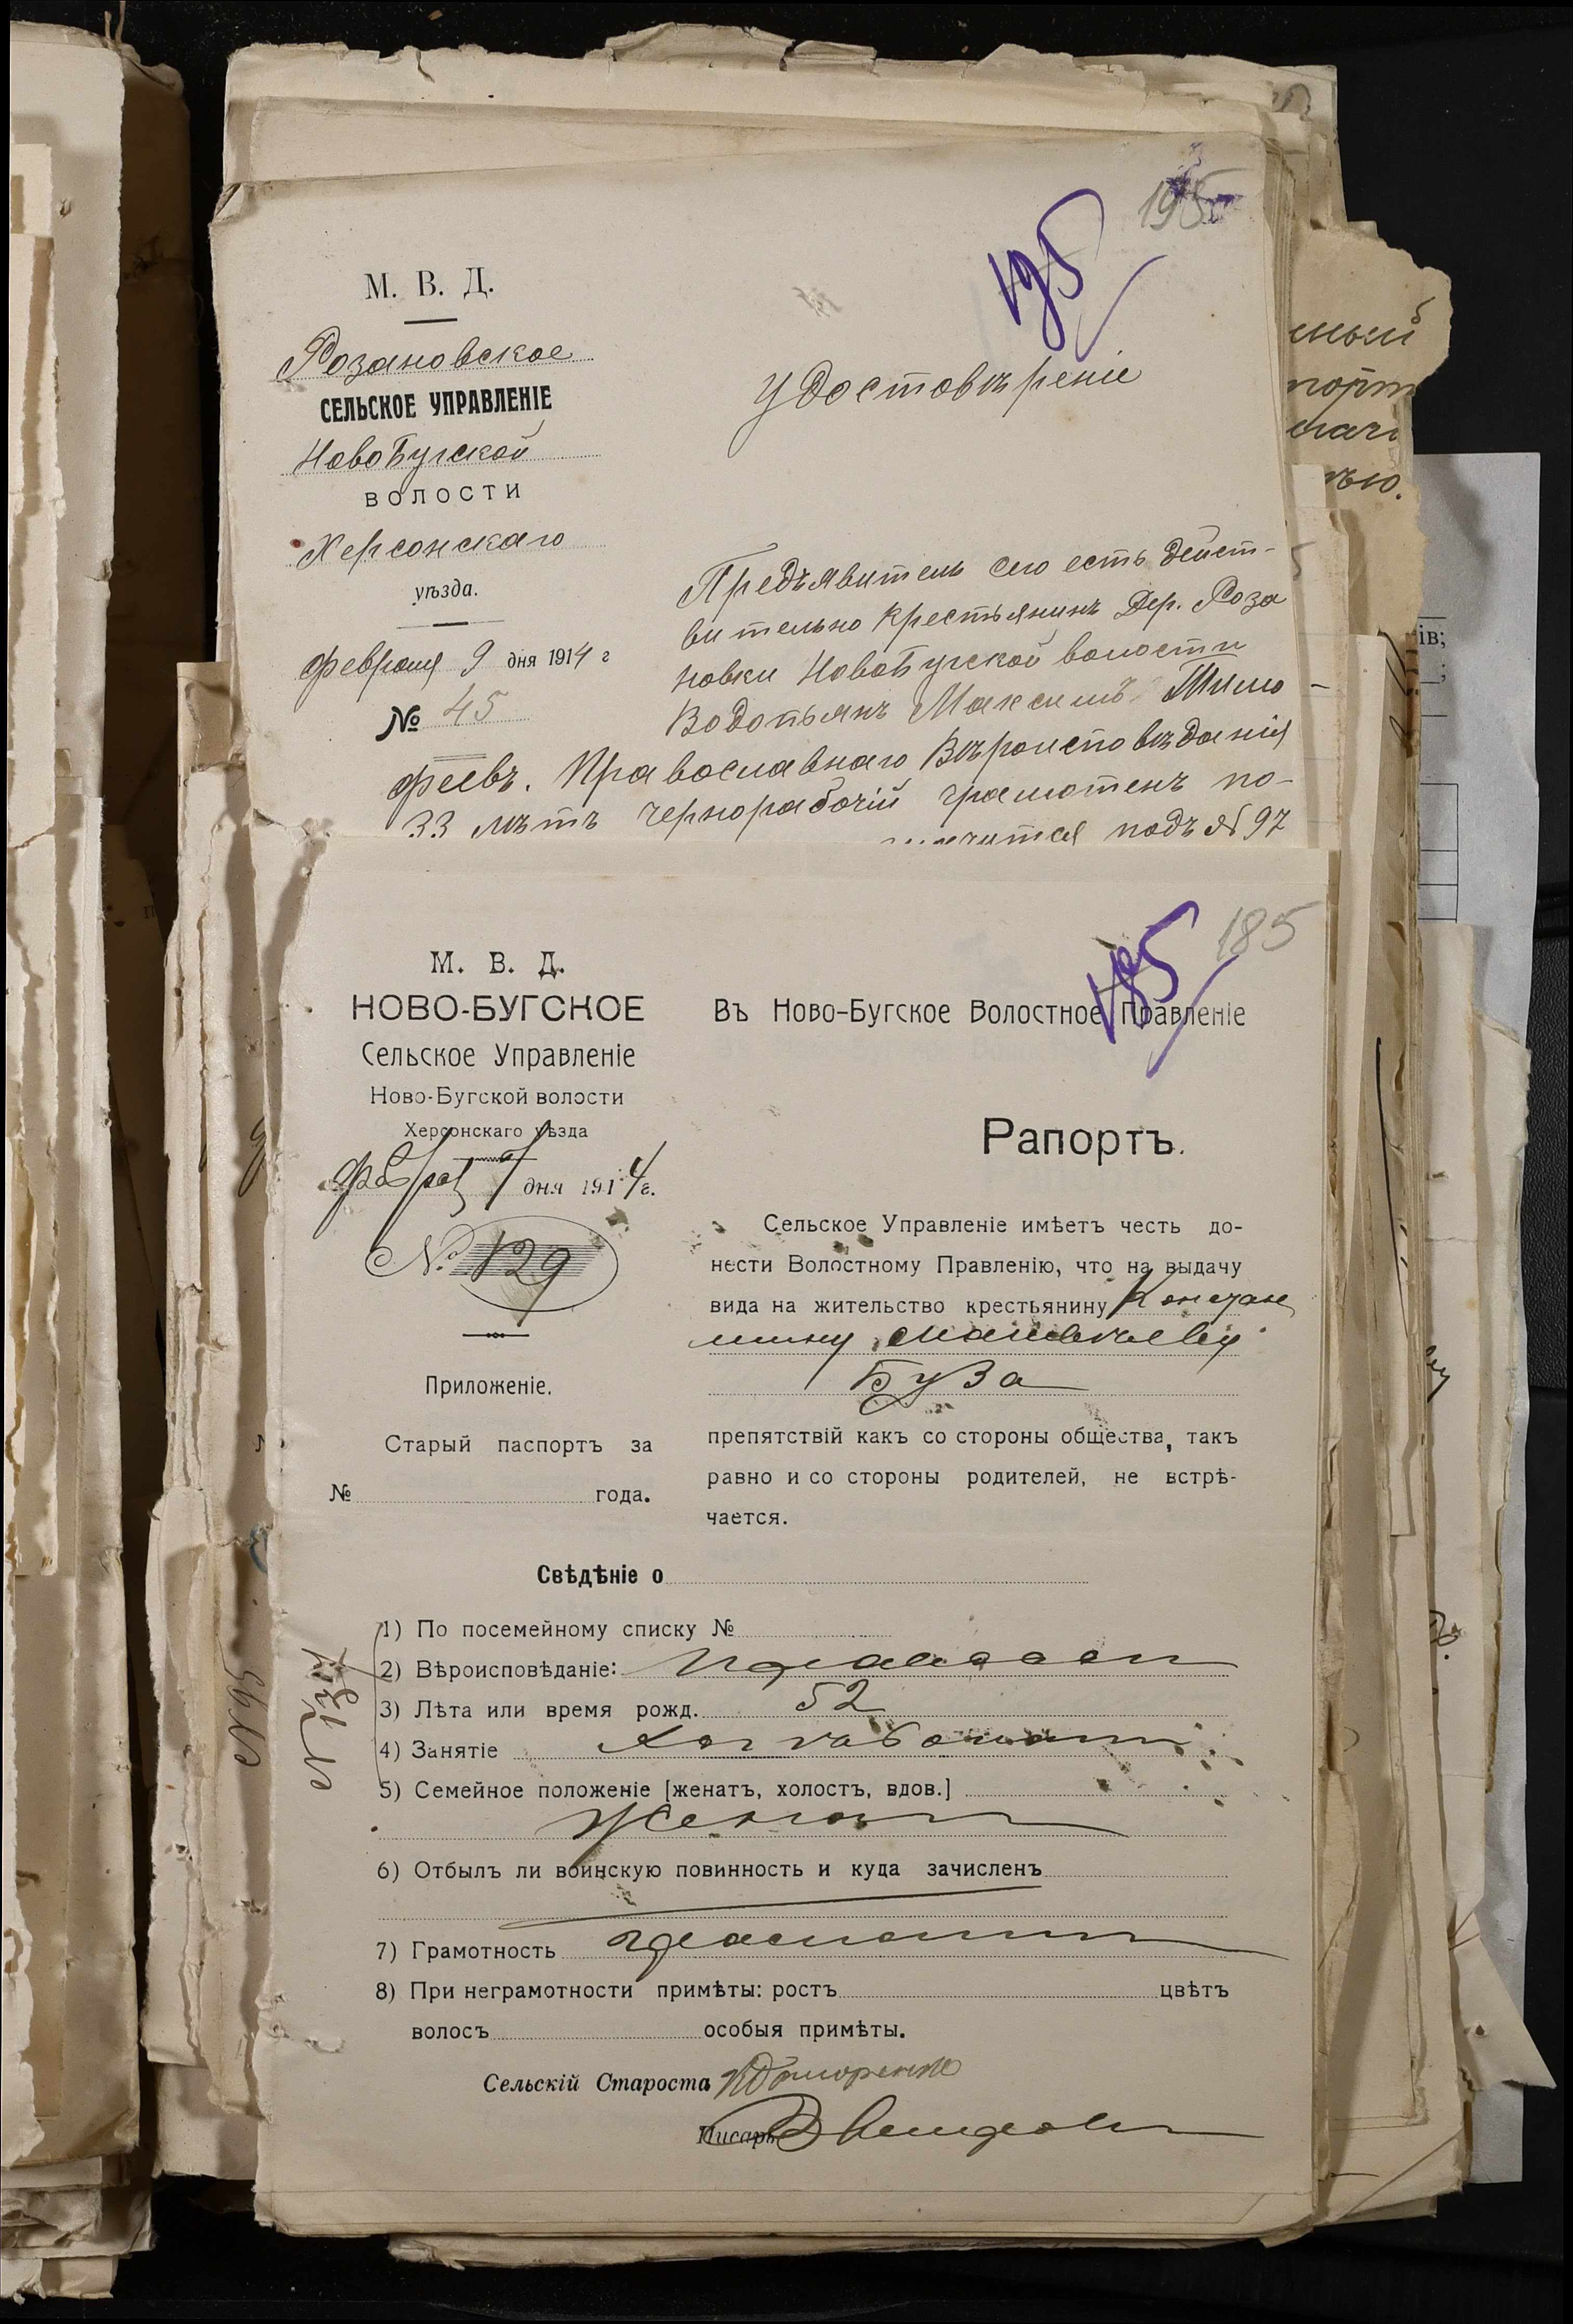 195
195
М. В. Д.
Розановское
СЕЛЬСКОЕ УПРАВЛЕНІЕ
НовоБугской
ВОЛОСТИ
Херсонскаго
уѣзда.
Февраля 9 дня 1914 г
№ 45
Удостовѣреніе
Предъявитель сего есть дейст-
вительно крестьянинъ Дер. Роза
новки НовоБугской волости
Водопьянъ Максимъ Тимо-
феевъ. Православнаго Вѣроисповѣданія
33 лѣтъ чернорабочій грамотенъ по-
подъ № 97
185
185
М. В. Д.
НОВО-БУГСКОЕ
Сельское Управленіе
Ново-Бугской волости
Херсонскаго уѣзда
дня 1914 г.
№ 129
Приложеніе.
Старый паспортъ за
№ года.
Въ Ново-Бугское Волостное Правленіе
Рапортъ.
Сельское Управленіе имѣетъ честь до-
нести Волостному Правленію, что на выдачу
вида на жительство крестьянину Констан
тину
Буза
препятствій какъ со стороны общества, такъ
равно и со стороны родителей, не встрѣ-
чается.
Свѣдѣніе о
1) По посемейному списку №
2) Вѣроисповѣданіе:
3) Лѣта или время рожд. 52
4) Занятіе
5) Семейное положеніе [женатъ, холостъ, вдов.]
Женат
6) Отбылъ ли воинскую повинность и куда зачисленъ
7) Грамотность грамотн
8) При неграмотности примѣты: ростъ цвѣтъ
волосъ особыя примѣты.
Сельскій Староста
Писарь